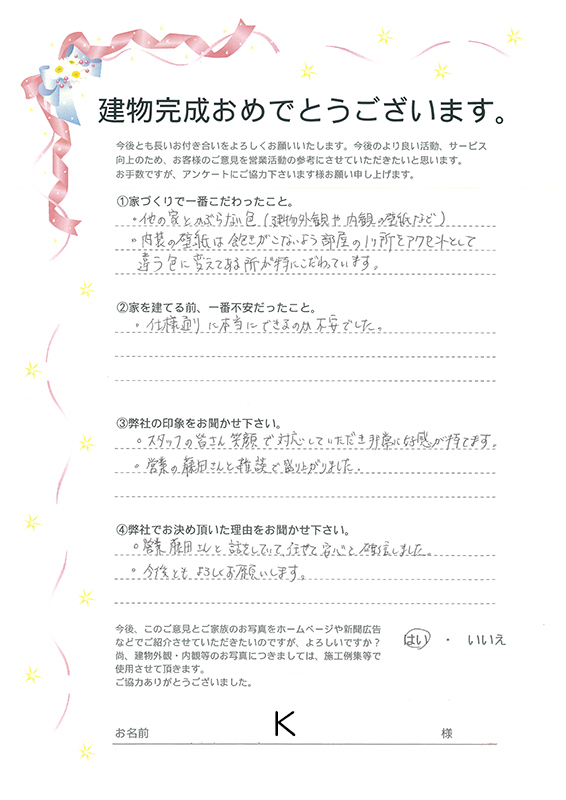 建物完成おめでとうございます。
今後とも長いお付き合いをよろしくお願いいたします。今後のより良い活動、サービス
向上のため、お客様のご意見を営業活動の参考にさせていただきたいと思います。
お手数ですが、アンケートにご協力下さいます様お願い申し上げます。
①家づくりで一番こだわったこと。
・他の家とかぶらない色(建物外観や内観の壁紙など)
・内装の壁紙は飽きがこないよう部屋の1ヶ所をアクセントとして
違う色に変えてある所が特にこだわっています。
②家を建てる前、一番不安だったこと。
・仕様通りに本当にできるのか不安でした。
③弊社の印象をお聞かせ下さい。
・スタッフの皆さん笑顔で対応していただき非常に好感が持てます。
・営業の藤田さんと雑談で盛り上がりました。
④弊社でお決め頂いた理由をお聞かせ下さい。
・営業藤田さんと話をしていて、任せて安心と確信しました。
・今後ともよろしくお願いします。
今後、このご意見とご家族のお写真をホームページや新聞広告
などでご紹介させていただきたいのですが、よろしいですか?
尚、建物外観・内観等のお写真につきましては、施工例集等で
使用させて頂きます。
ご協力ありがとうございました。
はい ・ いいえ
お名前 K 様